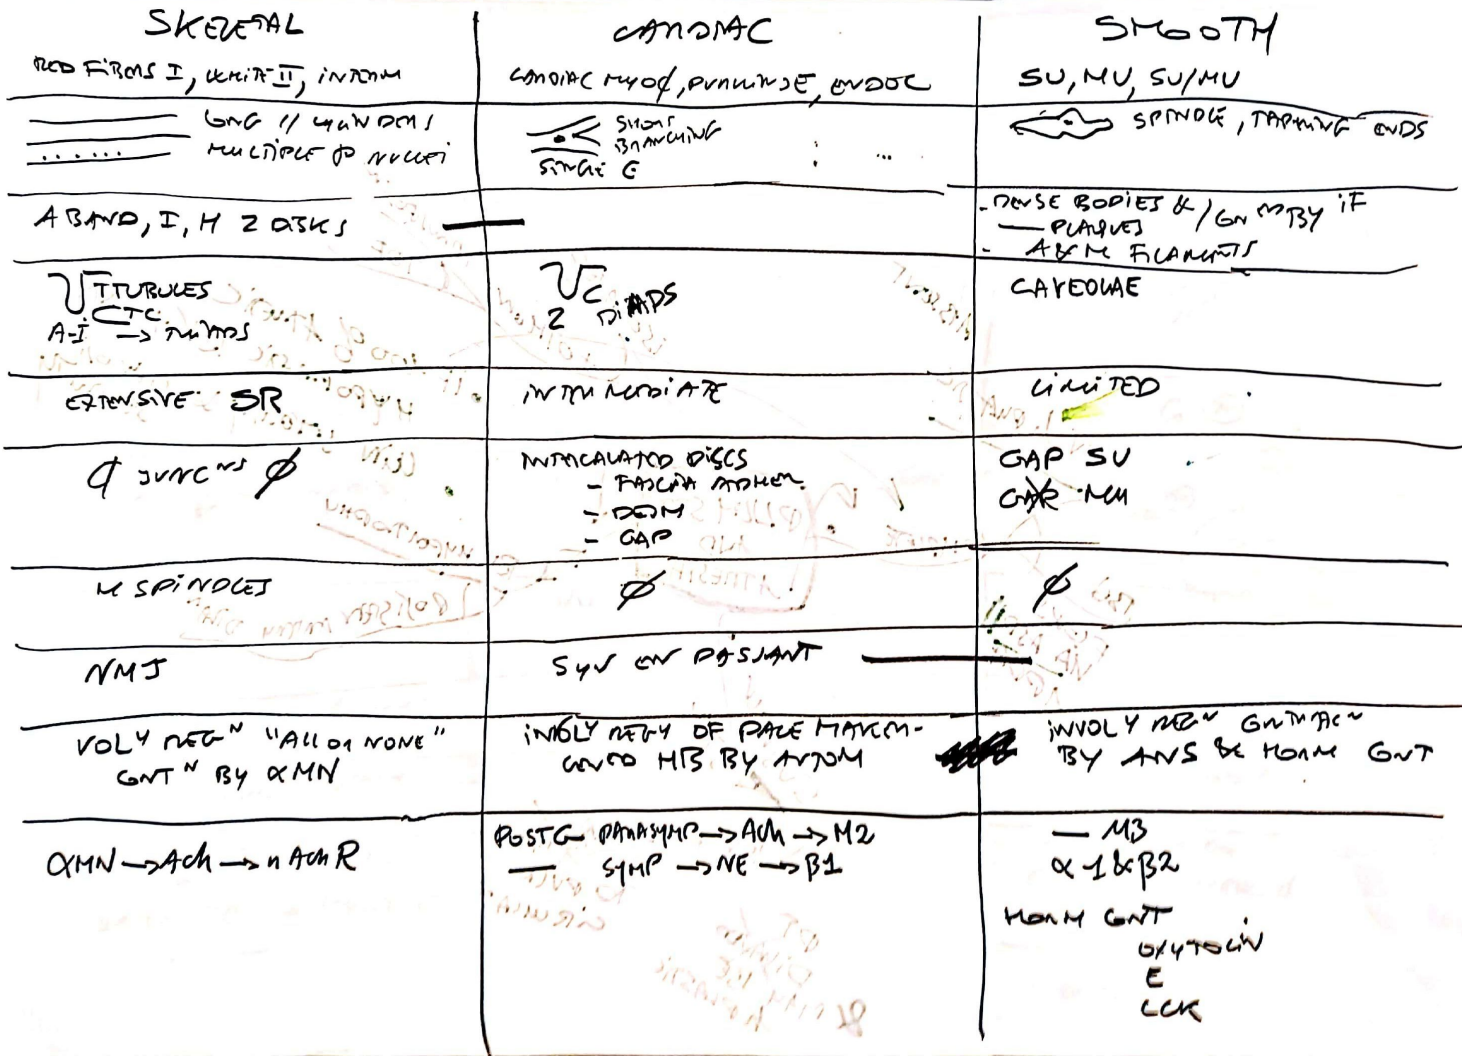 SKELETAL
CARDIAC
SMOOTH
RED FIBERS I, WHITE II, INTERM
CARDIAC MYO¢, PURKINJE, ENDOC
SU, MU, SU/MU
LONG // CYLINDERS
MULTIPLE P NUCLEI
SHORT
BRANCHING
SINGLE C
SPINDLE, TAPERING ENDS
A BAND, I, H Z DISKS
- DENSE BODIES & / CONN BY IF
— PLAQUES
- A&M FILAMENTS
T TUBULES
TC
A-I → TRIADS
Z DIADS
CAVEOLAE
EXTENSIVE SR
INTERMEDIATE
LIMITED
¢ JUNC NS Ø
INTERCALATED DISCS
- FASCIA ADHER.
- DESM
- GAP
GAP SU
GAP MU
M SPINDLES
Ø
Ø
NMJ
SYN EN PASSANT
VOLY REGN "ALL OR NONE"
CONTN BY αMN
INVOLY REGY OF PACE MAKER-
GENED HB BY AUTOM
INVOLY REGN CONTRACN
BY ANS & HORM CONT
αMN → ACh → nAChR
POSTG PARASYMP → ACh → M2
— SYMP → NE → β1
— M3
α1 & β2
HORM CONT
OXYTOCIN
E
CCK